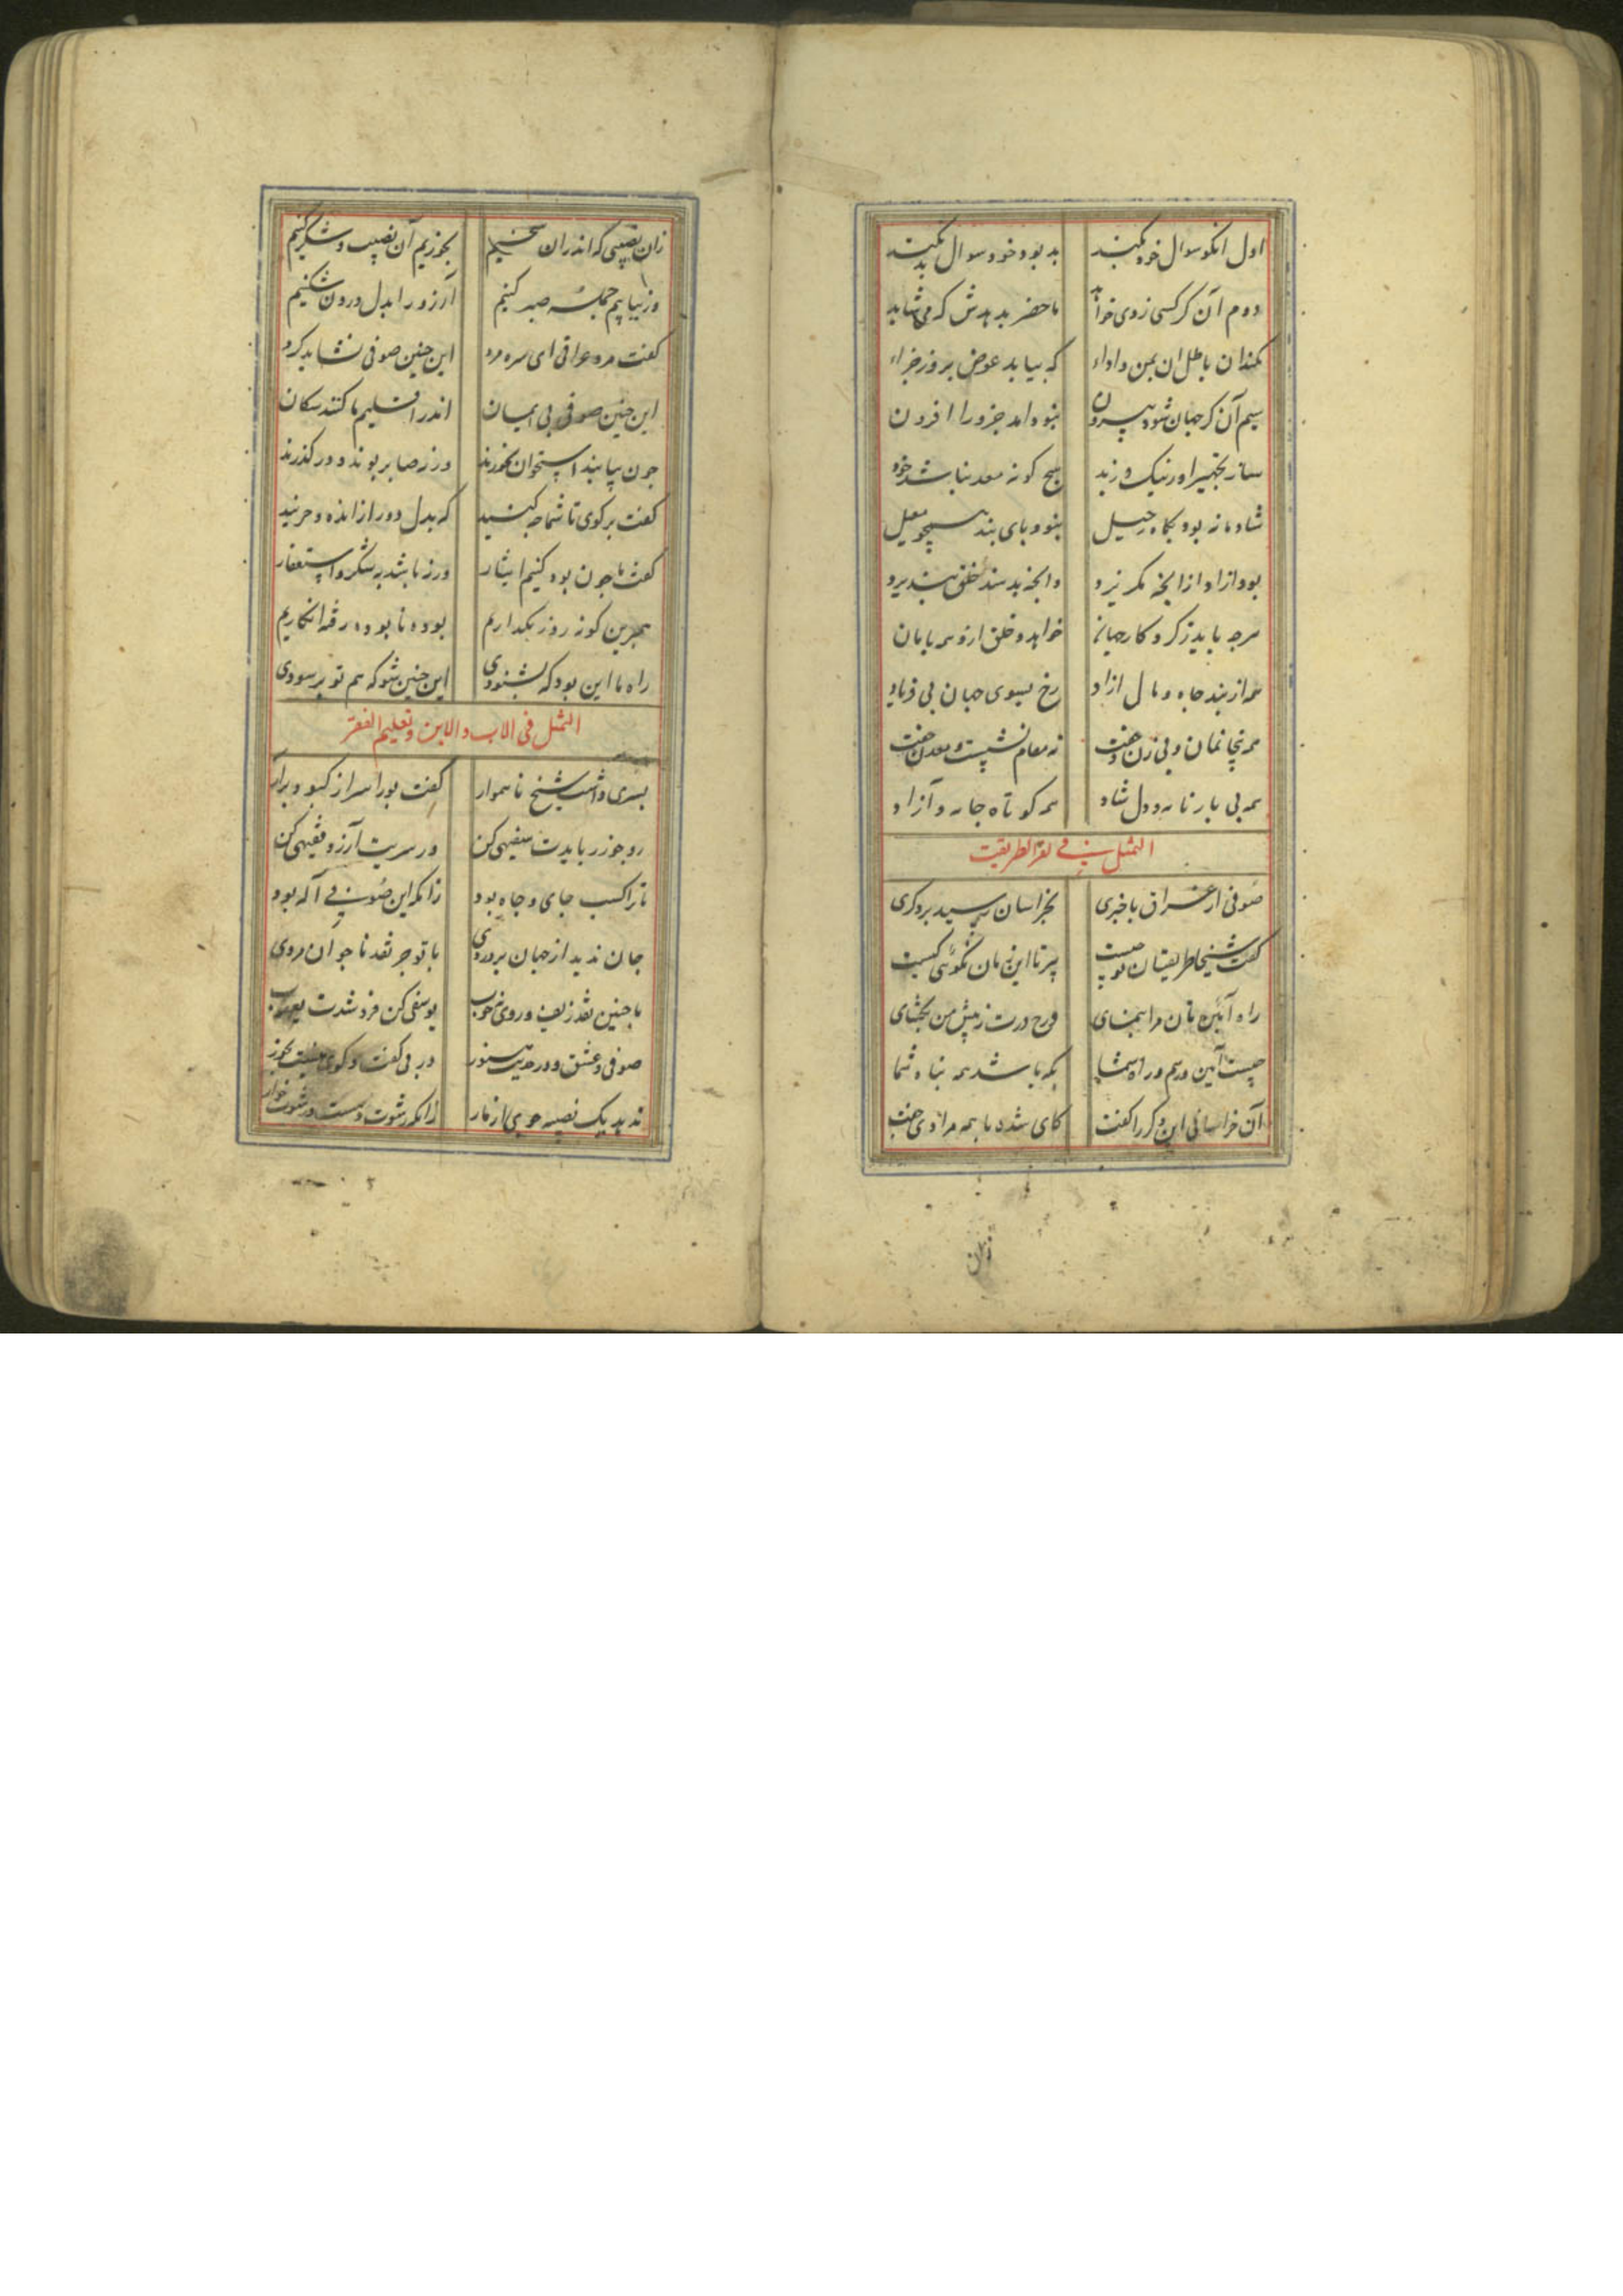 اول انکو سوال خود نکند بد بود خود سوال بد نکند
دوم آن کر کسی ازوی خواهد ماحضر بدهدش که می شاید
نکند آن باطل ان بمن و اداء که بیابد عوض بروز جزاء
سیم آن کر جهان شود بیرون نبود امد جزو را افزون
ساز تجهیز او ز نیک و ز بد هیچ کونه معد نباشد خود
شادمانه بود بکاه رحیل نبود پای بند همچو معیل
بود ازاد از انجه نکریزد وانجه بدهند خلق نپذیرد
هرجه باید ز کردکار جهان خواهد و خلق ازو همه بامان
همه از بند جاه و مال ازاد رخ بسوی جهان بی فریاد
همه بیخانمان و بی زن و جفت نه مقام نشست و معدن خفت
همه بی بار نامه و دل شاد همه کوتاه جامه و آزاد
التمثل فی فقر الطریقت
صوفی از عراق باخبری بخراسان رسید بر دکری
کفت شیخا طریقتان بر چیست پیرتان این زمان نکوئی کیست
راه آئین تان مرا بنمای درج درت ز پیش من بکشای
چیست آیین و رسم و راه شما بکه باشد همه پناه شما
آن خراسانی این دکر را کفت کای شده با همه مرادی جفت
زان نصیبی که اندران سخنیم بخوریم آن نصیب و شکر کنیم
ور نیابیم جمله صبر کنیم آرزو را بدل درون شکنیم
کفت مرد عراقی ای سره مرد این چنین صوفی نشاید کرد
این چنین صوفی بی ایمان اندر اقلیم ما کنند سکان
جون بیابند استخوان بخورند ورنه صابر بوند و در کذرند
کفت برکوی تا شما چه کنید که بدل دور از انده و حزنید
کفت ما جون بود کنیم ایثار ور نباشد به شکر و استغفار
همبرین کونه روز بکذاریم بوده نابوده رفته انکاریم
راه ما این بود که بشنودی این چنین شو که هم تو بر سودی
التمثل فی الاب و الابن و تعلیم الفقر
پسری داشت شیخ ناهموار کفت بورا سر از کبو وبرار
رو جوزر بایدت سفیهی کن ور سریت آرزو فقیهی کن
تا ترا کسب جای و جاه بود زانکه این صوفی آله بود
جان ندید از جهان بر دردی با تو جز نقد ناجوانمردی
با جنین نقد زلف و روی خوب یوسفی کن فروشدت یعقوب
صوفی و عشق و در حدیث هنوز
ندید یک نصیه جوی از نار زانکه رشوت دهست و رشوت خوار